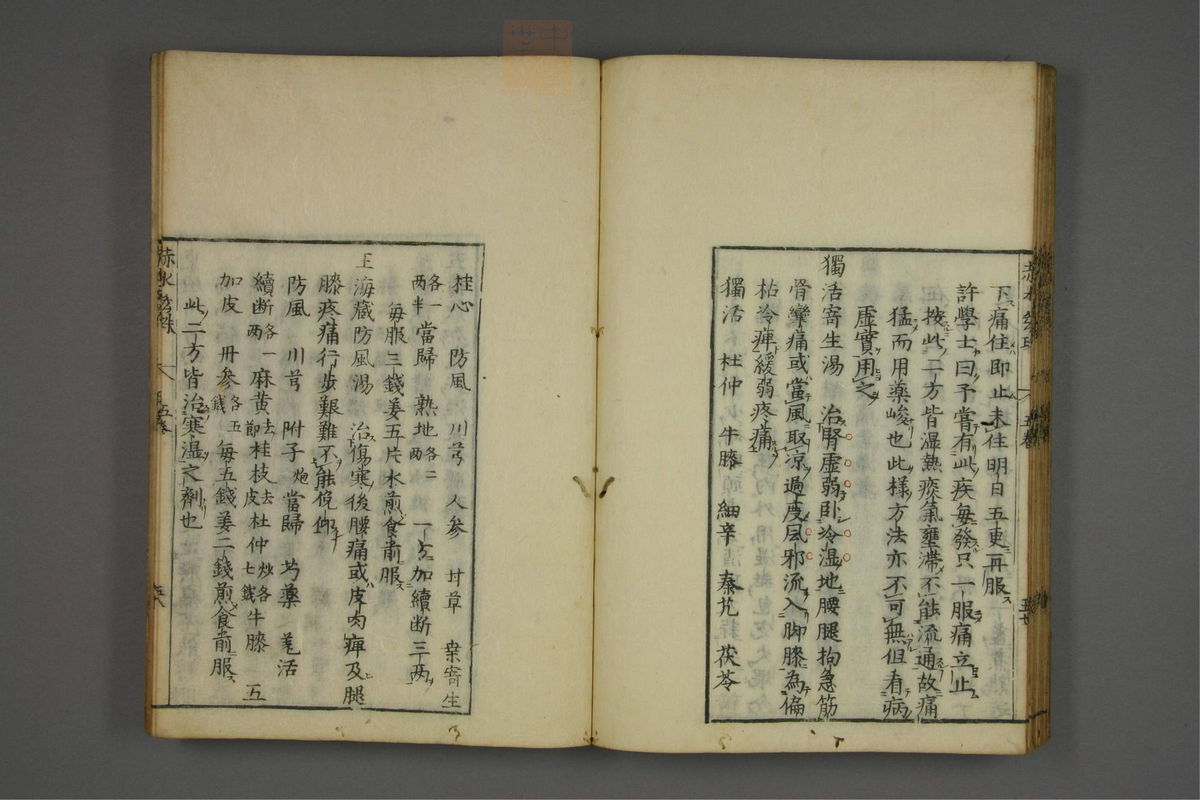 下痛住即止未住明日五更再服
許學士曰予嘗有此疾每發只一服痛立止
按此二方皆湿熱痰氣壅滯不能流通故痛
猛而用藥峻也此様方法亦不可無但看病
虚實用之
獨活寄生湯 治腎虚弱卧冷湿地腰腿拘急筋
骨攣痛或當風取凉過度風邪流入脚膝為偏
枯冷痺緩弱疼痛
獨活 杜仲 牛膝 細辛 秦艽 茯苓
桂心 防風 川芎 人参 甘草 桒寄生
各一两半 當歸 熟地各二两 一方加續断三两
每服三錢姜五片水煎食前服
王海藏防風湯 治傷寒後腰痛或皮肉痺及腿
膝疼痛行步艱難不能俛仰
防風 川芎 附子炮 當歸 芍藥 羌活
續断各一两 麻黄去節 桂枝去皮 杜仲炒各七錢 牛膝 五
加皮 丹参各五錢 每五錢姜二錢煎食前服
此二方皆治寒湿之劑也
赤水 五卷